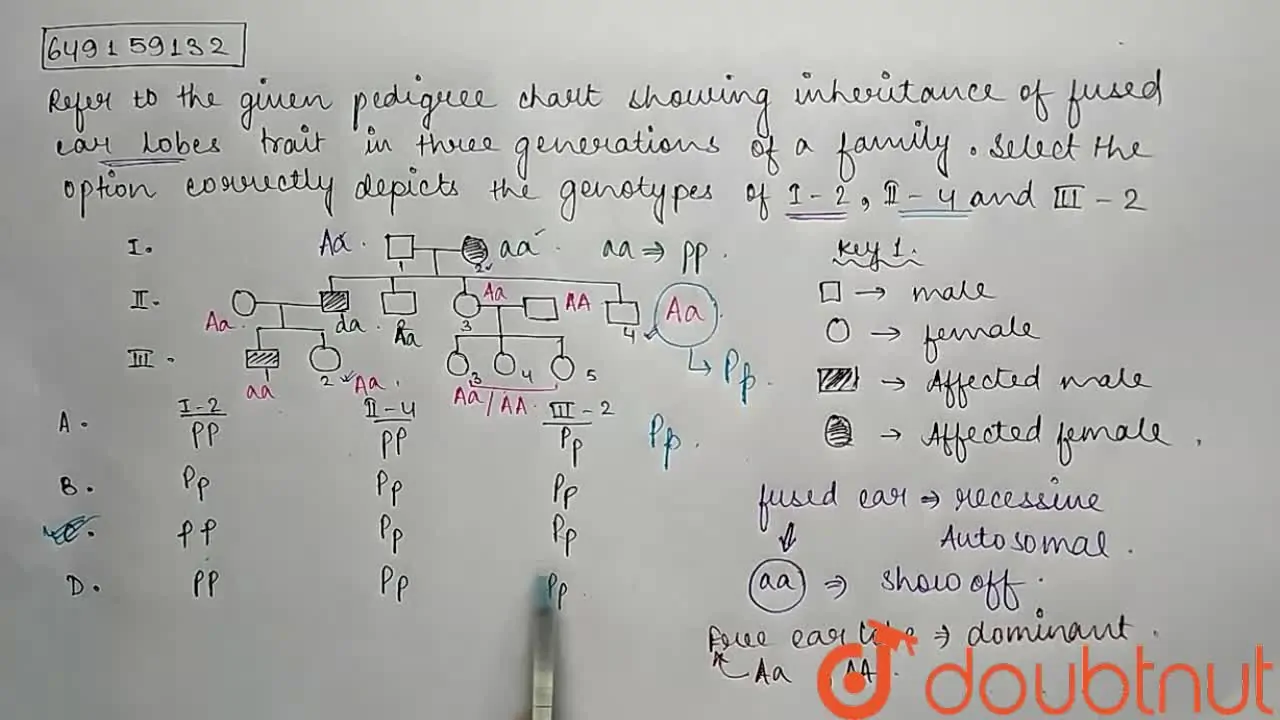 649159132
Refer to the given pedigree chart showing inheritance of fused
ear lobes trait in three generations of a family. Select the
option correctly depicts the genotypes of I-2, II-4 and III-2
I. Aa. 1 2 aa. aa ⇒ pp. Key 1.
II. Aa AA Aa. □ → male
Aa. aa. Aa 3 4 ○ → female
III. 2 3 4 5 → Pp. → Affected male
aa Aa. Aa/AA.
I-2 II-4 III-2
A. PP PP Pp Pp. → Affected female.
B. Pp Pp Pp fused ear ⇒ recessive
C. pp Pp Pp Autosomal.
D. PP Pp Pp. aa ⇒ show off.
Free ear lobe ⇒ dominant.
Aa, AA.
doubtnut